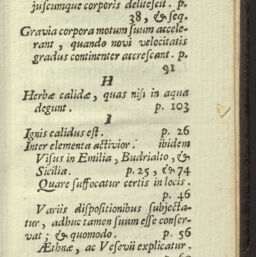 juscumque corporis delitescit. p.
38, & seq.
Gravia corpora motum suum accele-
rant, quando novi velocitatis
gradus continenter accrescant. p.
91
H
Herbæ calidæ, quas nisi in aqua
degunt. p. 103
I
Ignis calidus est. p. 26
Inter elementa activior. ibidem
Visus in Emilia, Budrialto, &
Sicilia. p. 25, & 74
Quare suffocatur certis in locis.
p. 46
Variis dispositionibus subjecta-
tur, adhuc tamen suum esse conser-
vat; & quomodo. p. 56
Æthnæ, ac Vesevii explicatur.